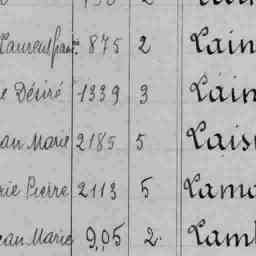 Laurent franc. 875 2 Lain
e Désiré 1339 3 Lain
an Marie 2185 5 Lais
rie Pierre 2113 5 Lama
ean Marie 905 2. Lamb